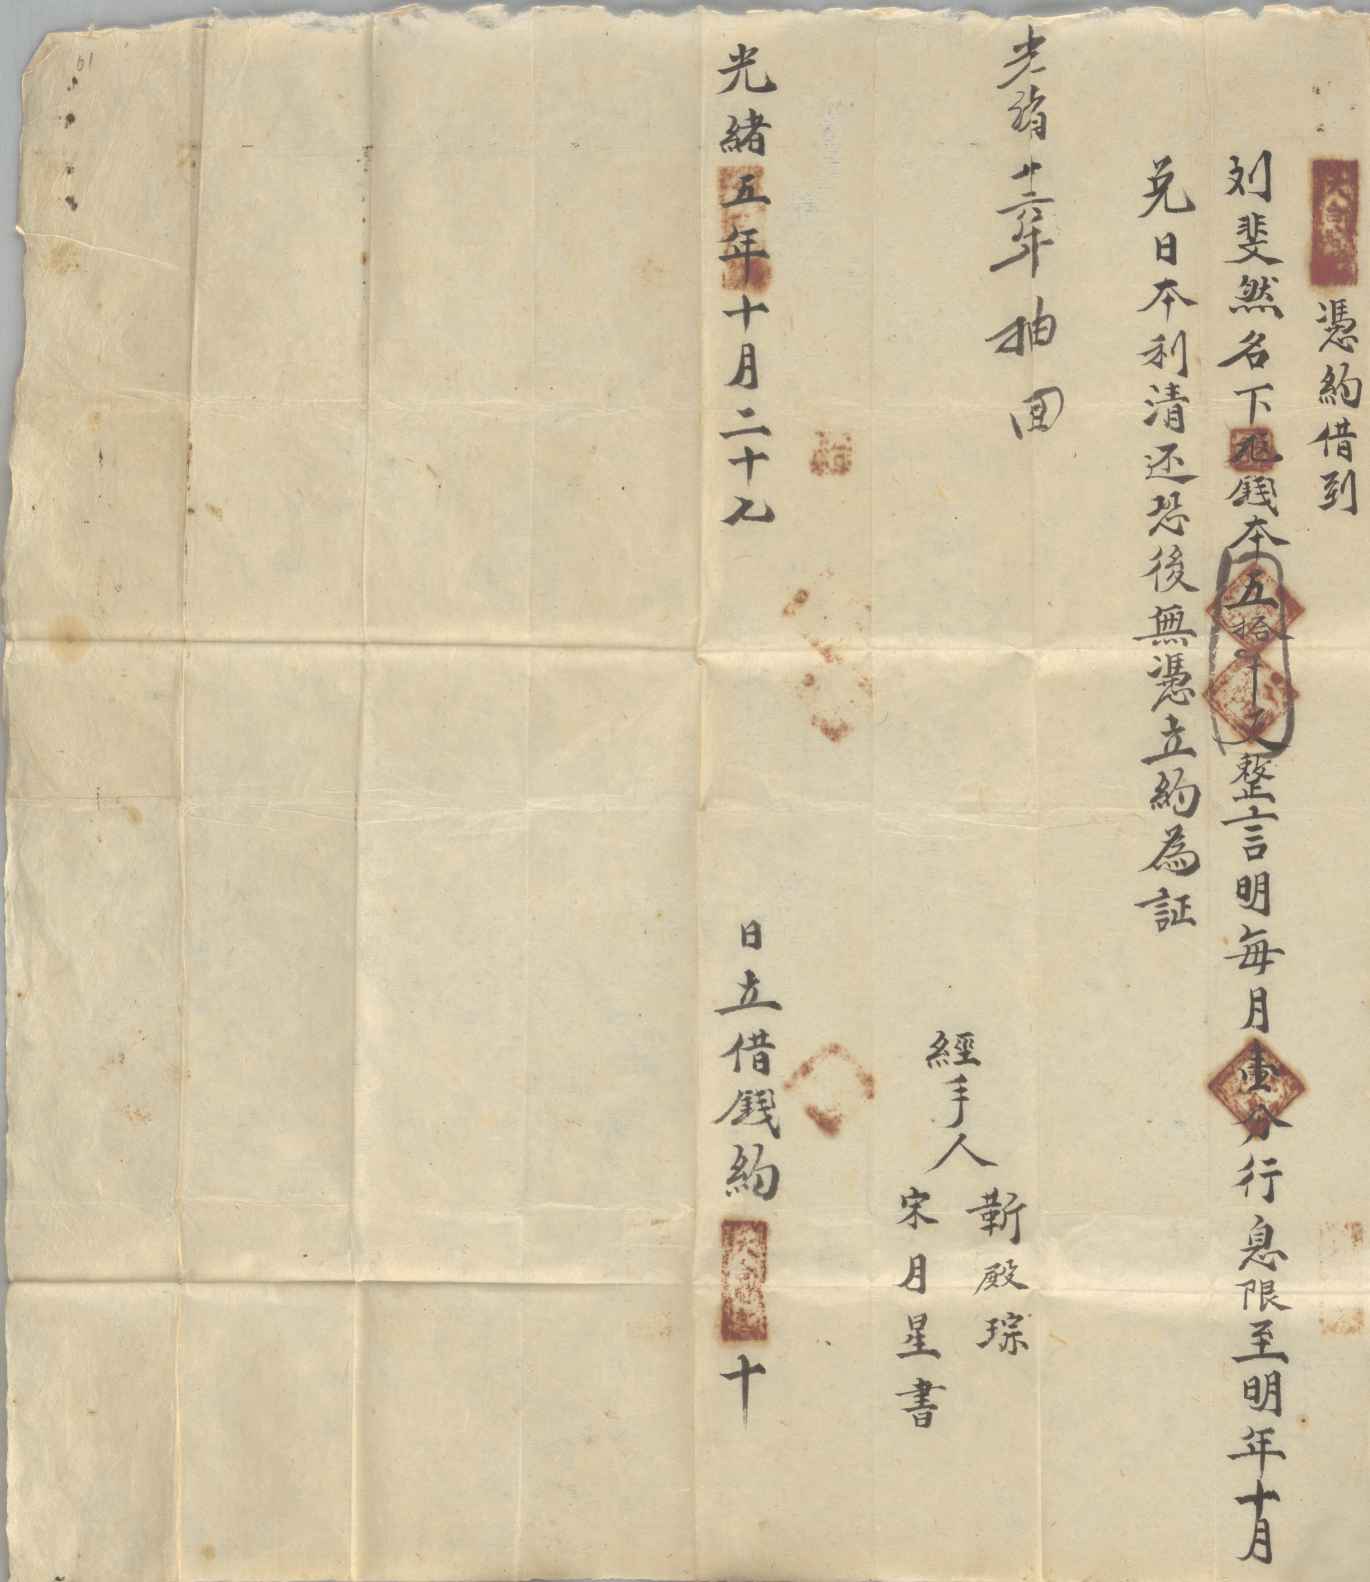 憑約借到
刘斐然名下兑錢本五拾千文整言明每月壹分行息限至明年十月
兑日本利清还恐後無憑立約為証
光緒廿六年抽回
經手人
靳殿琮
宋月星書
光緒五年十月二十九
日立借錢約
十
61